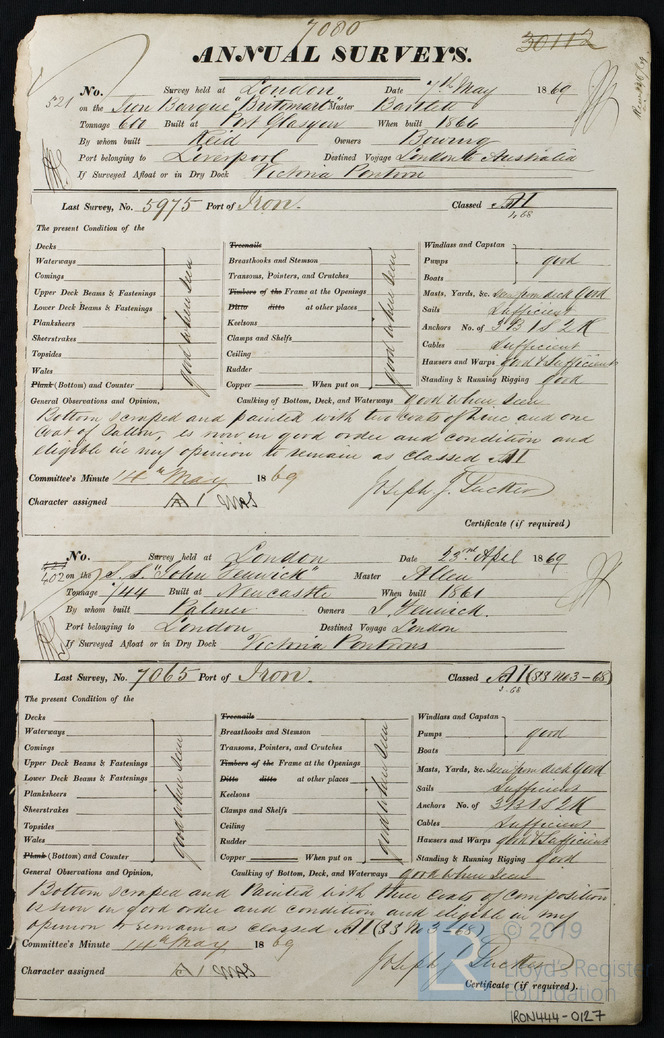 7080
ANNUAL SURVEYS.
30112
No. Survey held at London Date 7th May 1869
521 on the Iron Barque "Britomart" Master Bartlett
Tonnage 600 Built at Port Glasgow When built 1866
By whom built Reid Owners Bowring
Port belonging to Liverpool Destined Voyage London to Australia
If Surveyed Afloat or in Dry Dock Victoria Pontoon
Last Survey, No. 5975 Port of Iron. Classed A1
4.68
The present Condition of the
Decks Treenails Windlass and Capstan
Waterways Breasthooks and Stemson Pumps good
Comings Transoms, Pointers, and Crutches Boats
Upper Deck Beams & Fastenings Timbers of the Frame at the Openings Masts, Yards, &c. seen from deck Good
Lower Deck Beams & Fastenings Ditto ditto at other places Sails Sufficient
Planksheers Keelsons Anchors No. of 3B 1S 2K
Sheerstrakes Clamps and Shelfs Cables Sufficient
Topsides Ceiling Hawsers and Warps good & Sufficient
Wales Rudder Standing & Running Rigging good
Plank (Bottom) and Counter Copper When put on
good when seen
good when seen
General Observations and Opinion, Caulking of Bottom, Deck, and Waterways good when seen
Bottom scraped and painted with two coats of Zinc and one
Coat of Tallow, is now in good order and condition and
eligible in my opinion to remain as classed A1
Committee's Minute 14th May 1869
Joseph J. Tucker
Character assigned A1
Certificate (if required)
No. Survey held at London Date 23rd April 1869
402 on the S.S. "John Fenwick" Master Allen
Tonnage 744 Built at Newcastle When built 1861
By whom built Palmer Owners J. Fenwick.
Port belonging to London Destined Voyage London
If Surveyed Afloat or in Dry Dock Victoria Pontoons
Last Survey, No. 7065 Port of Iron. Classed A1 (SS No3-68)
3.68
The present Condition of the
Decks Treenails Windlass and Capstan
Waterways Breasthooks and Stemson Pumps good
Comings Transoms, Pointers, and Crutches Boats
Upper Deck Beams & Fastenings Timbers of the Frame at the Openings Masts, Yards, &c. seen from deck Good
Lower Deck Beams & Fastenings Ditto ditto at other places Sails Sufficient
Planksheers Keelsons Anchors No. of 3B 1S 2K
Sheerstrakes Clamps and Shelfs Cables Sufficient
Topsides Ceiling Hawsers and Warps good & Sufficient
Wales Rudder Standing & Running Rigging good
Plank (Bottom) and Counter Copper When put on
good when seen
good when seen
General Observations and Opinion, Caulking of Bottom, Deck, and Waterways good when seen
Bottom scraped and Painted with three Coats of Composition
is now in good order and condition and eligible in my
opinion to remain as classed A1 (SS No3-68)
Committee's Minute 14th May 1869
Joseph J. Tucker
Character assigned A1
Certificate (if required).
LR © 2019
Lloyd's Register
Foundation
IRON444-0127